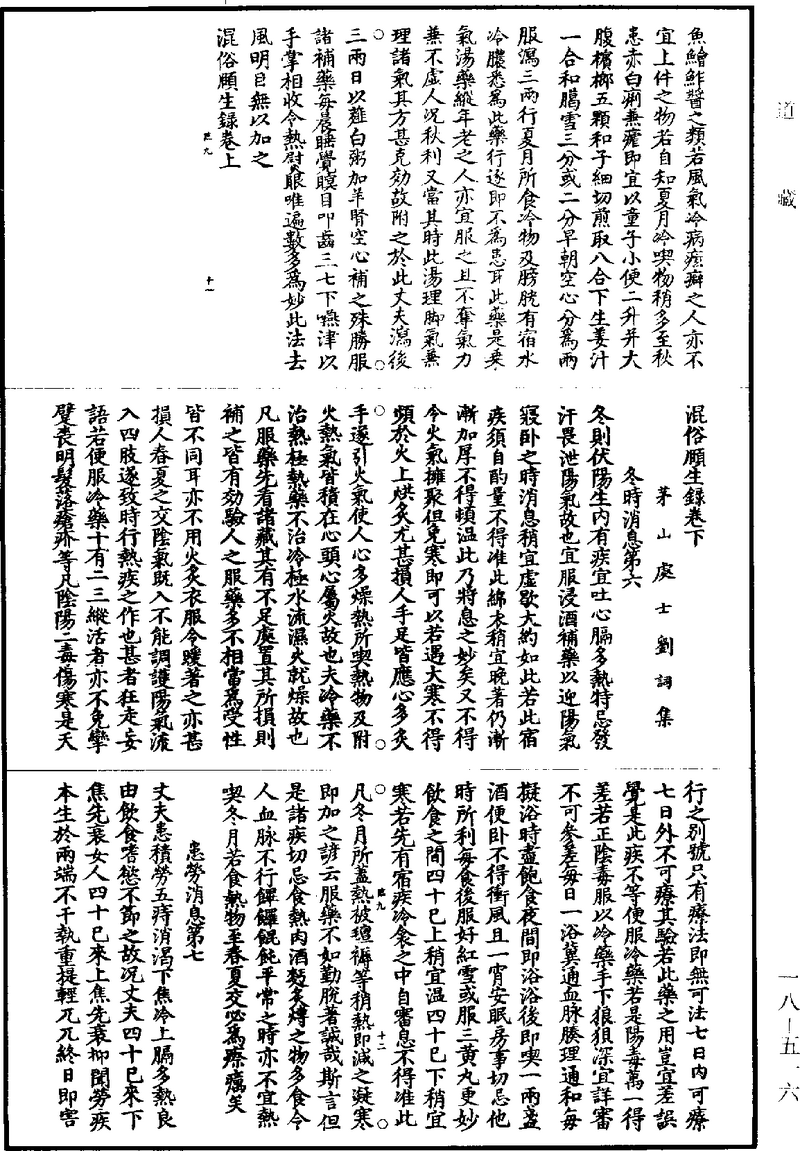 道藏
魚鱠鮓醬之類若風氣冷病痃癖之人亦不
宜上件之物若自知夏月冷喫物稍多至秋
患赤白痢兼瘧即宜以童子小便二升并大
腹檳榔五顆和子細切煎取八合下生薑汁
一合和臈雪三分或二分早朝空心分為兩
服瀉三兩行夏月所食冷物及膀胱有宿水
冷膿悉為此藥行逐即不為患耳此藥是乘
氣湯藥縱年老之人亦宜服之且不奪氣力
兼不虛人況秋利又當其時此湯理脚氣兼
理諸氣其方甚克効故附之於此丈夫瀉後
三兩日以薤白粥加羊腎空心補之殊勝服
諸補藥每晨睡覺瞑目叩齒三七下嚥津以
手掌相收令熱熨眼唯遍數多為妙此法去
風明目無以加之
混俗頤生録卷上
混俗頤生録卷下
茅山處士劉詞集
冬時消息第六
冬則伏陽生內有疾宜吐心膈多熱特忌發
汗畏泄陽氣故也宜服浸酒補藥以迎陽氣
寢卧之時消息稍宜虛歇大約如此若此宿
疾須自酌量不得准此綿衣稍宜晚著仍漸
漸加厚不得頓溫此乃將息之妙矣又不得
令火氣擁聚但免寒即可以若遇大寒不得
頻於火上烘炙尤甚損人手足皆應心多炙
手遂引火氣使人心多燥熱所喫熱物及附
火熱氣皆積在心頭心屬火故也夫冷藥不
治熱極熱藥不治冷極水流濕火就燥故也
凡服藥先看諸藏其有不足處置其所損則
補之皆有効驗人之服藥多不相當為受性
皆不同耳亦不用火炙衣服令暖著之亦甚
損人春夏之交陰氣既入不能調護陽氣流
入四肢遂致時行熱疾之作也甚者狂走妄
語若便服冷藥十有二三縱活者亦不免攣
躄喪明髮落瘡疥等凡陰陽二毒傷寒是天
行之別號只有療法即無可法七日內可療
七日外不可療其驗若此藥之用豈宜差誤
覺是此疾不等便服冷藥若是陽毒萬一得
差若正陰毒服以冷藥手下狼狽深宜詳審
不可參差每日一浴冀通血脉腠理通和每
擬浴時盡飽食夜間即浴浴後即喫一兩盞
酒便卧不得衝風且一宵安眠房事切忌他
時所利每食後服好紅雪或服三黃丸更妙
飲食之間四十已上稍宜溫四十已下稍宜
寒若先有宿疾冷衾之中自審息不得准此
凡冬月所盖熱被氈褥等稍熱即減之凝寒
即加之諺云服藥不如勤脫著誠哉斯言但
是諸疾切忌食熱肉酒麪炙煿之物多食令
人血脉不行饆饠餛飩平常之時亦不宜熱
喫冬月若食熱物至春夏交必為瘵癘矣
患勞消息第七
丈夫患積勞五痔消渴下焦冷上膈多熱良
由飲食嗜慾不節之故況丈夫四十已來下
焦先衰女人四十已來上焦先衰抑聞勞疾
本生於兩端不干執重提輕兀兀終日即害
十一
十二
一八—五一六